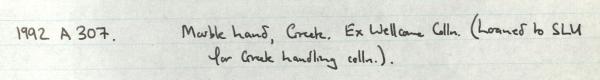 1992 A 307. Marble hand, Greek. Ex Wellcome Colln. (Loaned to SLU
for Greek handling colln.).